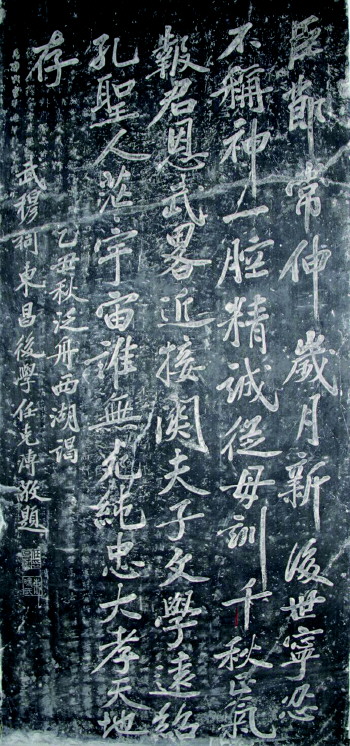 臣節常伸歲月新後世寧忍
不稱神一腔精誠從母訓千秋正氣
報君恩武畧近接関夫子文學遠紹
孔聖人茫茫宇宙誰無死純忠大孝天地
存
乙丑秋泛舟西湖謁
武穆祠東昌後學任克溥敬題